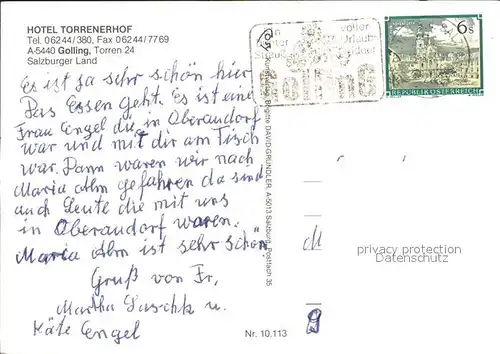 HOTEL TORRENERHOF
Tel. 06244/380, Fax 06244/7769
A-5440 Golling, Torren 24
Salzburger Land
Es ist ja sehr schön hier
Das Essen geht. Es ist eine
Frau Engel die in Oberaudorf
war und mit dir am Tisch
war. Dann waren wir nach
Maria Alm gefahren da sind
auch Leute die mit uns
in Oberaudorf waren.
Maria Alm ist sehr schön.
Gruß von Fr.
Martha u.
Käte Engel
voller
Urlaub
Golling
6 S
REPUBLIK ÖSTERREICH
Brigitte DAVID-GRÜNDLER, A-5013 Salzburg, Postfach 35
Nr. 10.113
privacy protection
Datenschutz